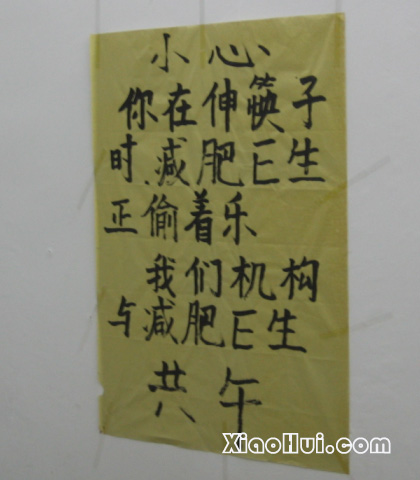 小心
你在伸筷子
时减肥E生
正偷着乐
我们机构
与减肥E生
共午
XiaoHui.com